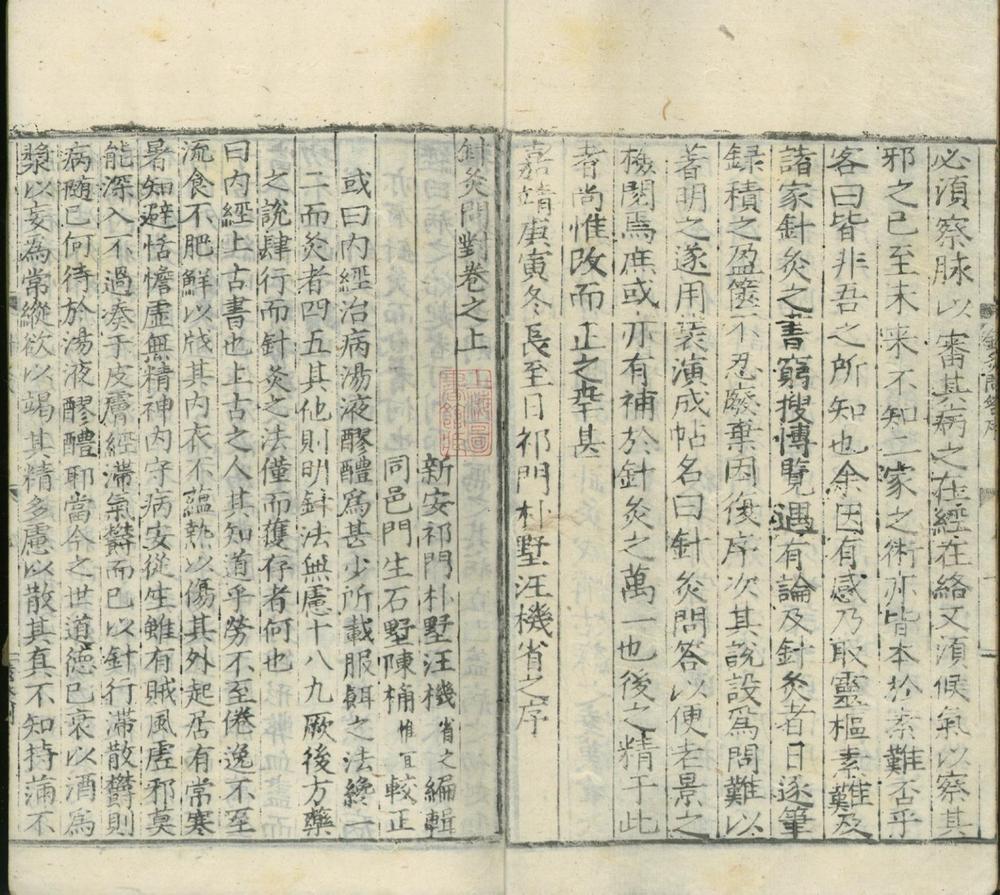 必須察脉以審其病之在經在絡又須候氣以察其
邪之已至未來不知二家之術亦皆本於素難否乎
客曰皆非吾之所知也余因有感乃取靈樞素難及
諸家針灸之書窮搜博覽遇有論及針灸者日逐筆
録積之盈篋不忍廢棄因復序次其說設爲問難以
著明之遂用裝演成帖名曰針灸問答以便老景之
檢閱焉庶或亦有補於針灸之萬一也後之精于此
者尚惟改而正之幸甚
嘉靖庚寅冬長至日祁門朴墅汪機省之序
針灸問對卷之上
新安祁門朴墅汪機省之編輯
同邑門生石墅陳桷惟宜較正
或曰内經治病湯液醪醴爲甚少所載服餌之法纔一
二而灸者四五其他則明針法無慮十八九厥後方藥
之說肆行而針灸之法僅而獲存者何也
曰内經上古書也上古之人其知道乎勞不至倦逸不至
流食不肥鮮以戕其内衣不蘊熱以傷其外起居有常寒
暑知避恬憺虛無精神内守病安從生雖有賊風虛邪莫
能深入不過凑于皮膚經滯氣欝而已以針行滯散欝則
病隨已何待於湯液醪醴耶當今之世道德已衰以酒爲
漿以妄為常縱欲以竭其精多慮以散其真不知持滿不